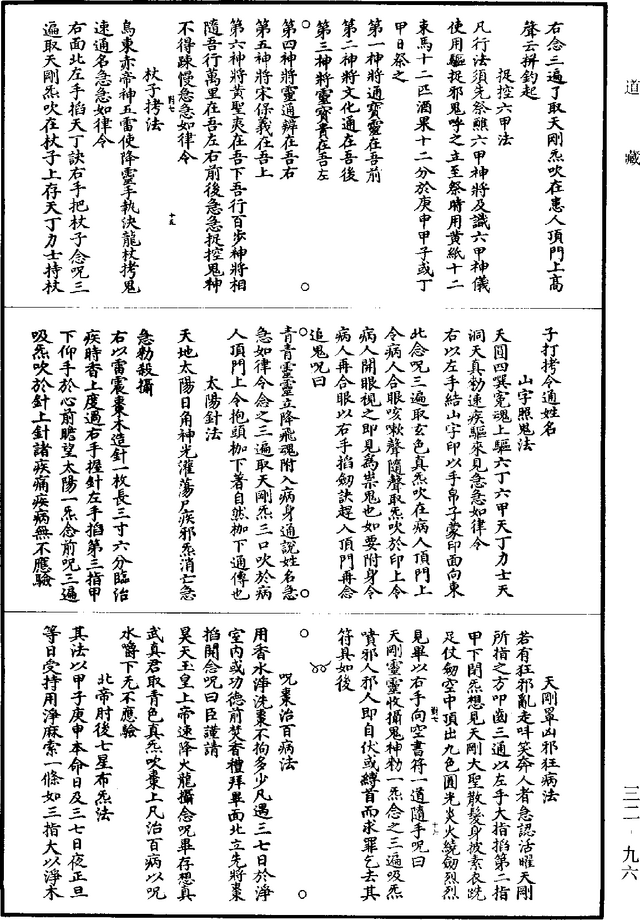 道藏
右念三遍了取天剛炁吹在患人頂門上高
聲云捹釣起
捉控六甲法
凡行法須先祭醮六甲神將及識六甲神儀
使用驅捉邪鬼呼之立至祭時用黃紙十二
束馬十二匹酒果十二分於庚申甲子或丁
甲日祭之
第一神將通寶靈在吾前
第二神將文化通在吾後
第三神將靈寶青在吾左
第四神將靈通辨在吾右
第五神將宋保義在吾上
第六神將黃聖夷在吾下吾行百步神將相
隨吾行萬里在吾左右前後急急捉控鬼神
不得踈慢急急如律令
杖子拷法
烏東亦帝神五雷使降靈手執決龍杖拷鬼
速通名急急如律令
右面北左手掐天丁訣右手把杖子念呪三
遍取天剛炁吹在杖子上存天丁力士持杖
子打拷令通姓名
山字照鬼法
天圓四冥寃魂上驅六丁六甲天丁力士天
洞天真勑速疾驅來見急急如律令
右以左手結山字印以手帛子蒙印面向東
北念呪三遍取玄色真炁吹在病人頂門上
令病人合眼咳嗽聲隨聲取炁吹於印上令
病人開眼視之即見為祟鬼也如要附身令
病人再合眼以右手掐劒訣趕入頂門再念
追鬼呪曰
青青靈靈立降飛魂附入病身通說姓名急
急如律令念之三遍取天剛炁三口吹於病
人頂門上令抱頭枷下著自然枷下通傳也
太陽針法
天地太陽日角神光濯蕩尸疾邪炁消亡急
急勑殺攝
右以雷震棗木造針一枚長三寸六分臨治
疾時香上度過右手握針左手掐第三指甲
下仰手於心前瞻望太陽一炁念前呪三遍
吸炁吹於針上針諸疾痛疾病無不應驗
天剛罩山邪狂病法
若有狂邪亂走呌笑奔人者急認活曜天剛
所指之方叩齒三通以左手大指掐第二指
甲下閉炁想見天剛大聖散髮身披素衣跣
足仗劒空中頂出九色圓光炎火繞劒烈烈
見畢以右手向空書符一道隨手呪曰
天剛靈靈收攝鬼神勑一炁念之三遍吸炁
噴邪人邪人即自伏或縛首而求罪乞去其
符具如後
呪棗治百病法
用香水淨洗棗不拘多少凡遇三七日於淨
室內或功德前焚香禮拜畢面北立先將棗
掐開念呪曰臣謹請
昊天玉皇上帝速降火龍攝念呪畢存想真
武真君取青色真炁吹棗上凡治百病以呪
水嚼下无不應驗
北帝肘後七星布炁法
其法以甲子庚申本命日及三七日夜正旦
等日受持用淨麻索一條如三指大以淨木
三二·九六